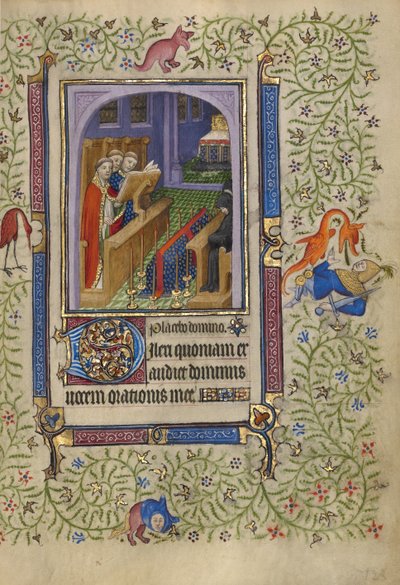 Placebo domino.
DIlexi quoniam ex
audiet dominus
uocem orationis mee